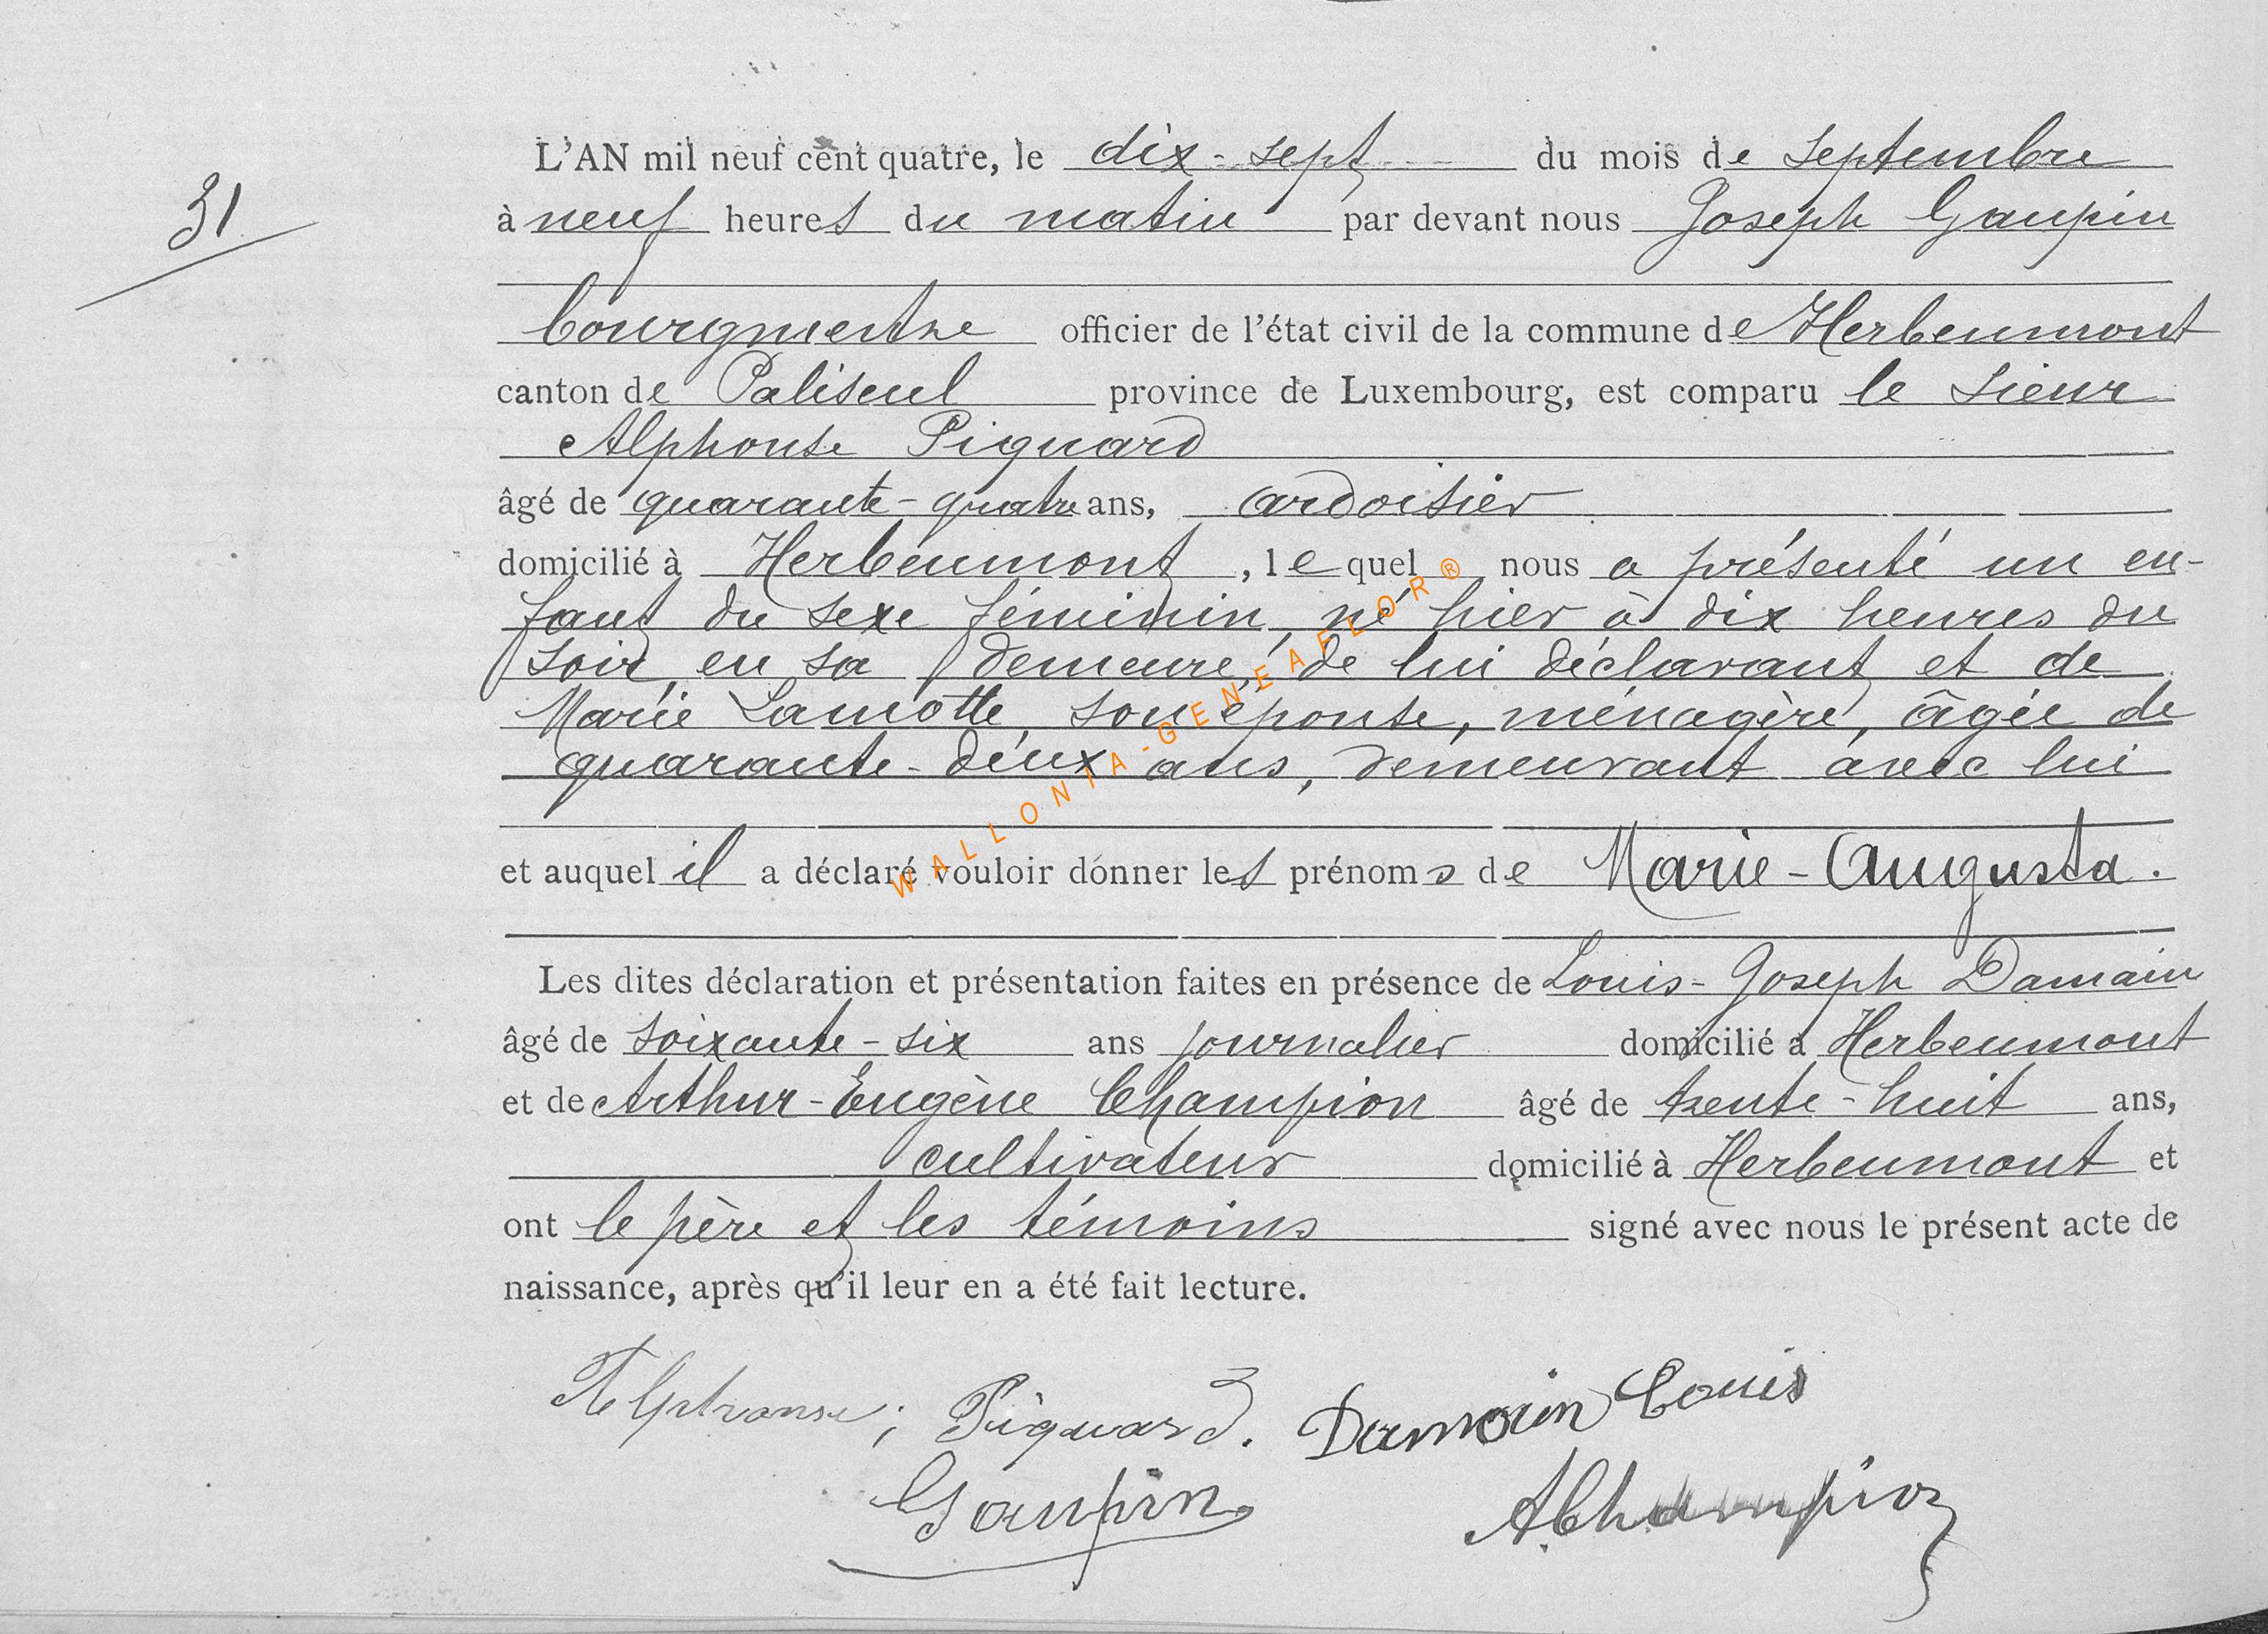 31
L'AN mil neuf cent quatre, le dix-sept du mois de Septembre
à neuf heures du matin par devant nous Joseph Gaupin
bourgmestre officier de l'état civil de la commune de Herbeumont
canton de Paliseul province de Luxembourg, est comparu le Sieur
Alphonse Piquard
âgé de quarante-quatre ans, ardoisier
domicilié à Herbeumont, lequel nous a présenté un en-
fant du sexe féminin, né hier à dix heures du
soir, en sa demeure, de lui déclarant et de
Marie Lamotte, son épouse, ménagère, âgée de
quarante-deux ans, demeurant avec lui
et auquel il a déclaré vouloir donner les prénoms de Marie-Augusta.
Les dites déclaration et présentation faites en présence de Louis-Joseph Damain
âgé de soixante-six ans journalier domicilié à Herbeumont
et de Arthur-Eugène Champion âgé de trente-huit ans,
cultivateur domicilié à Herbeumont et
ont le père et les témoins signé avec nous le présent acte de
naissance, après qu'il leur en a été fait lecture.
Alphonse; Piquard. Damain Louis
Gaupin AChampion
WALLONIA-GENEAFLOR®